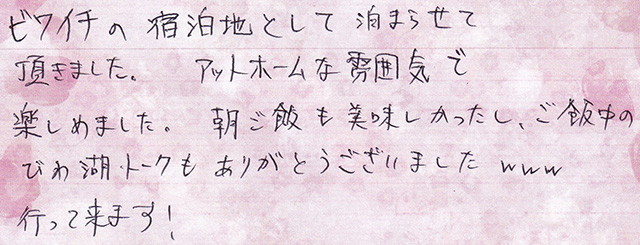 ビワイチの宿泊地として泊まらせて
頂きました。 アットホームな雰囲気で
楽しめました。朝ご飯も美味しかったし、ご飯中の
びわ湖トークもありがとうございましたwww
行って来ます!